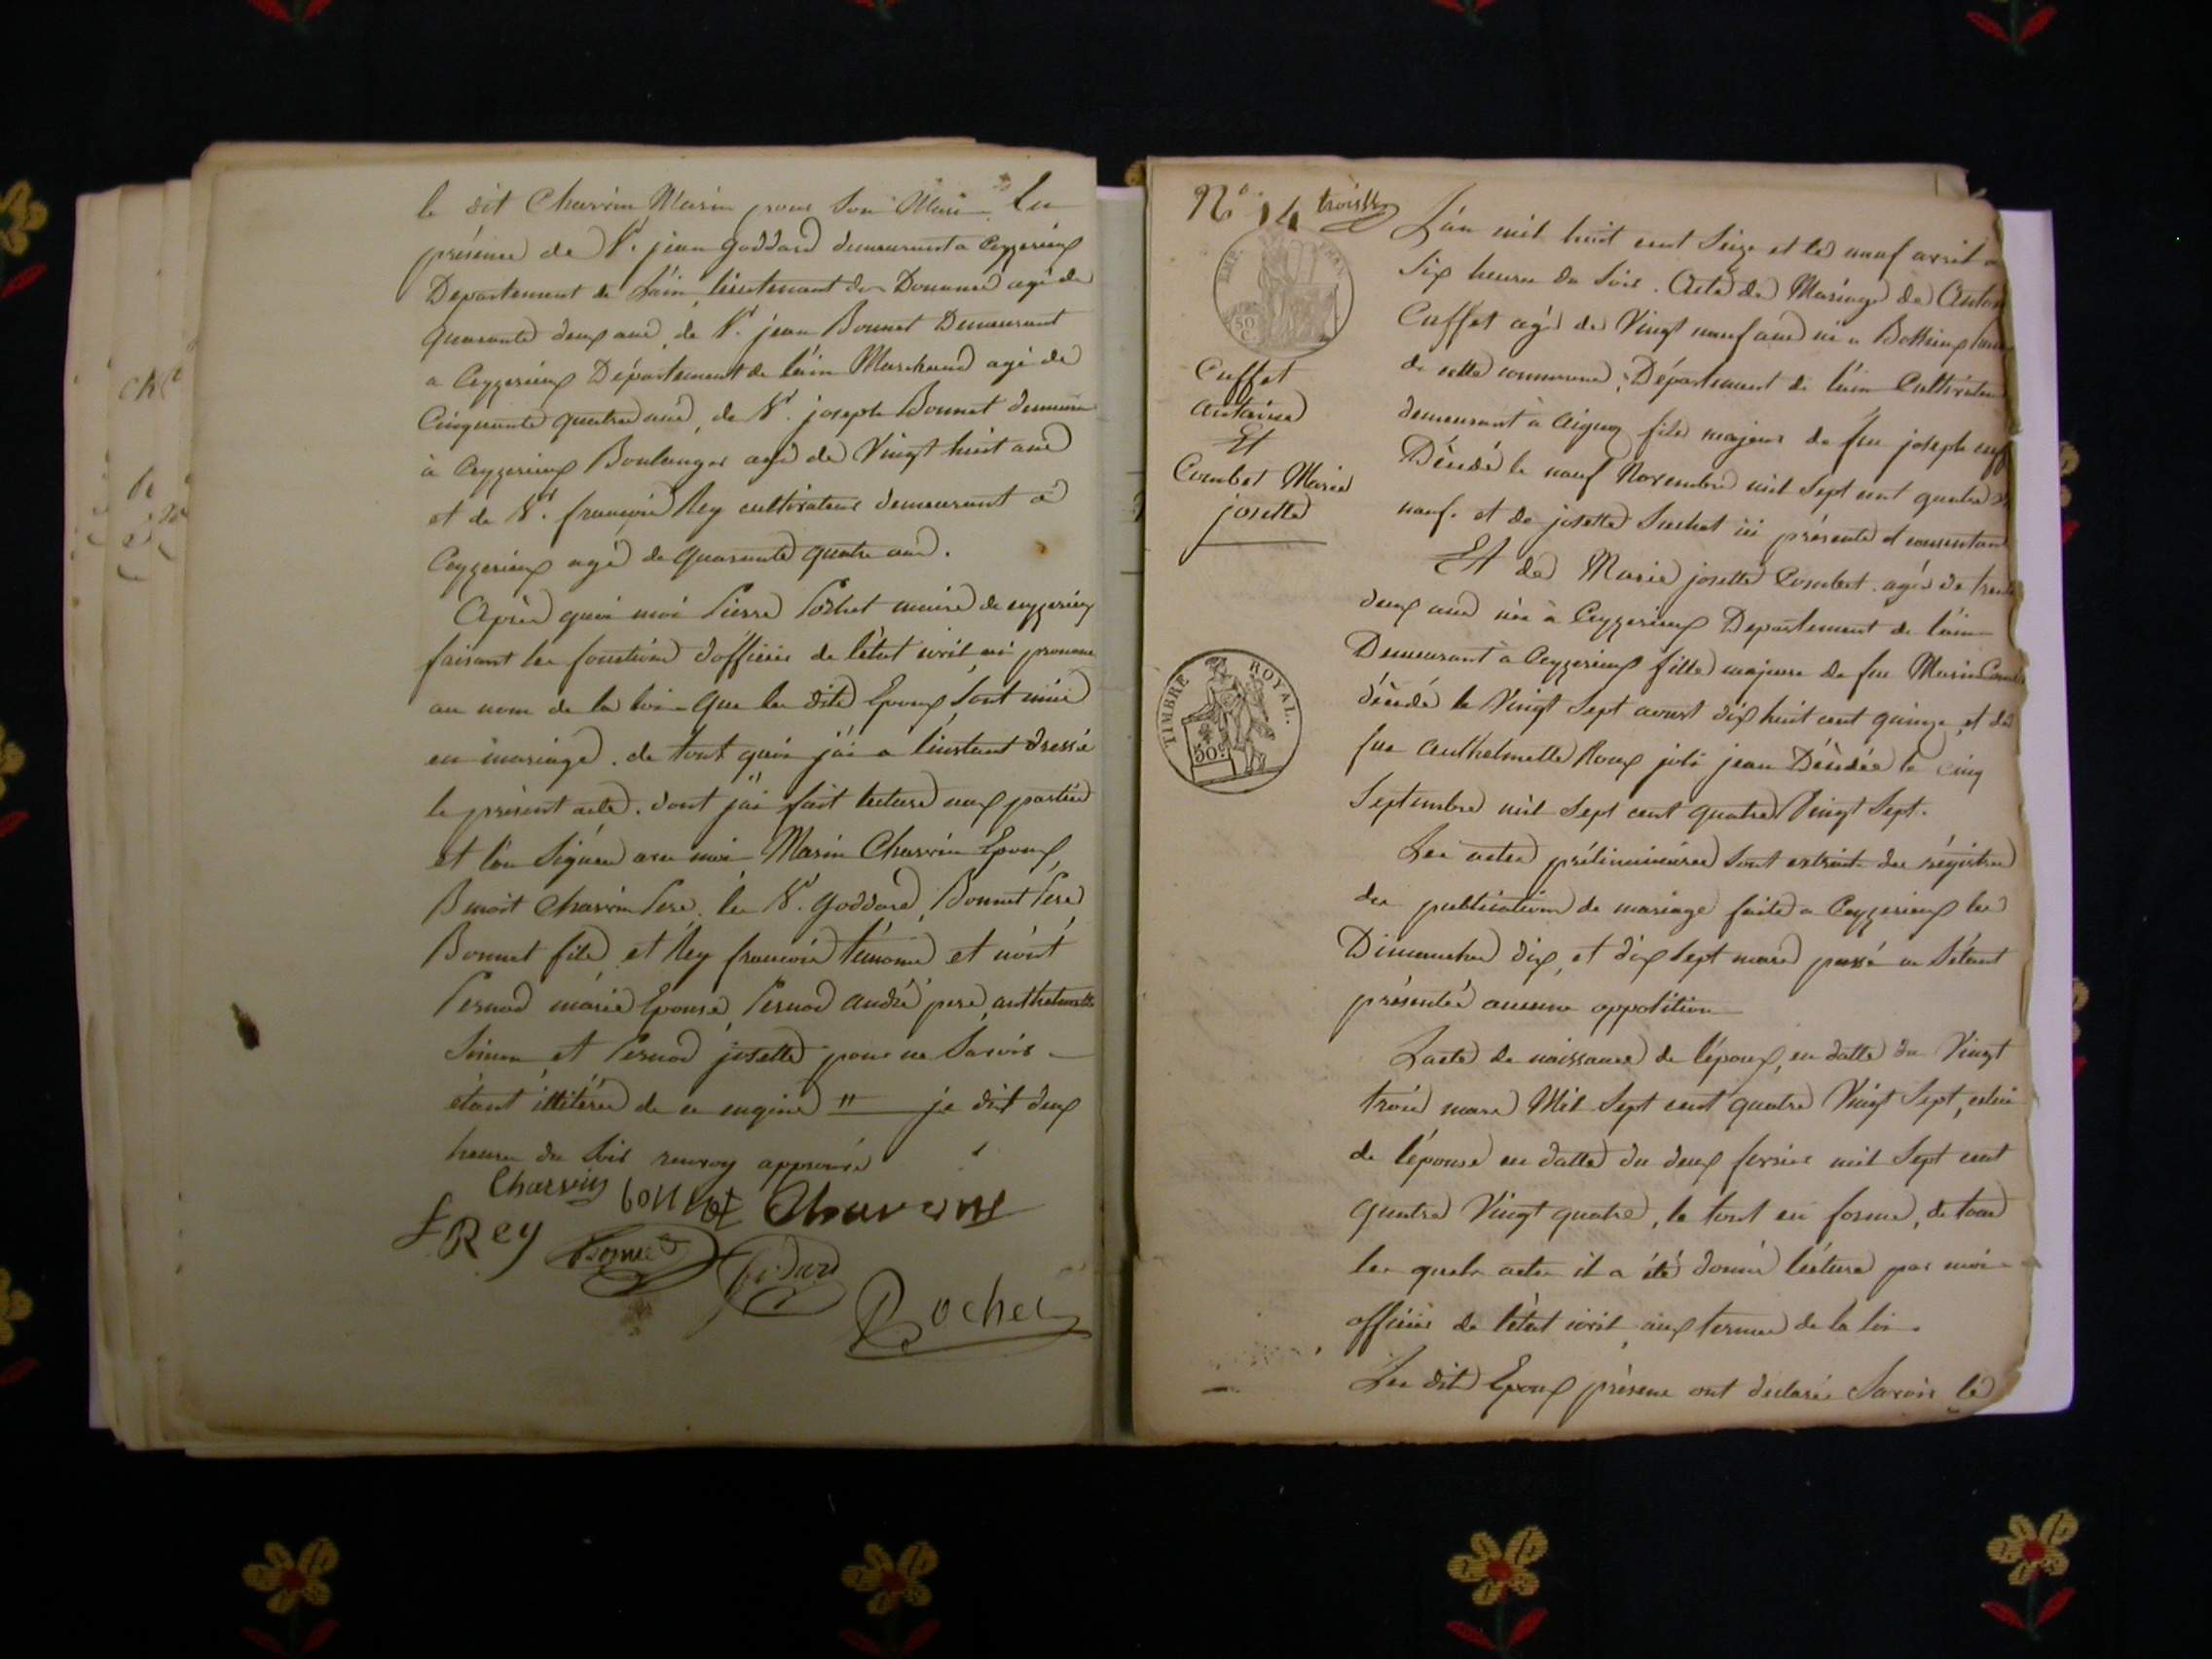 le dit Charvin Marin pour son Mari En
présence de Sr. jean goddard demeurant a Ceyzerieux
Departement de L'ain, lieutenant des Douanes agé de
quarante deux ans, de Sr. jean Bonnet Demeurant
a Ceyzerieux Département de l'ain Marchand agé de
Cinquante quatre ans, de Sr. joseph Bonnet demeurant
à Ceyzerieux Boulanger agé de Vingt huit ans
et de Sr. françois Rey cultivateur demeurant a
Ceyzerieux agé de quarante quatre ans.
Après quoi moi Pierre Pochet maire de ceyzerieux
faisant les fonctions d'officier de l'état civil ai prononcé
au nom de la loi que les dits Epoux sont unis
en mariage. de tout quoi j'ai a l'instant dressé
le présent acte. dont j'ai fait lecture aux parties
et l'on signés avec moi Marin Charvin Epoux,
Benoit Charvin Pere, les Srs. goddard, Bonnet Pere,
Bonnet fils et Rey françois témoins et n'ont
Pernod marie Epouse, Pernod andré pere, anthelmette
et Pernod josette pour ne savoir
étant illitérés de ce enquis " je dit deux
heures du soir renvoy approuvé
Charvin bonnet Charvin
f Rey Bonnet
Pochet
No. 14 troisse
Cuffet
antoine
Et
Combet Marie
josette
EMP. FRAN.
50 C
TIMBRE ROYAL.
50c
L'an mil huit cent seize et le neuf avril a
six heures du soir. Acte de Mariage de Antoi
Cuffet agé de Vingt neuf ans né a
de cette commune, Département de l'ain Cultivateur
demeurant à fils majeur de feu joseph cuff
Décédé le neuf Novembre mil sept cent quatre Vi
neuf. et de josette ici présente et consentan
Et de Marie josette Combet agée de trente
deux ans née à Ceyzerieux Departement de l'ain
Demeurant à Ceyzerieux fille majeure de feu Marin Comb
décédé le Vingt sept aoust dix huit cent quinze, et de
feue anthelmette Roux joli jean Décédée le cinq
septembre mil sept cent quatre Vingt sept.
Les actes préliminaires sont extraits des régistres
des publications de mariage faites a Ceyzerieux les
Dimanches dix, et dix sept mars passé ne s'étant
présentée aucune opposition
L'acte de naissance de l'époux, en datte du Vingt
trois mars Mil sept cent quatre Vingt sept, celui
de l'épouse en datte du deux fevrier mil sept cent
quatre Vingt quatre, le tout en forme, de tous
les quels actes il a été donné lecture par moi
officier de l'état civil aux termes de la loi.
Les dits Epoux présens ont déclaré Savoir le